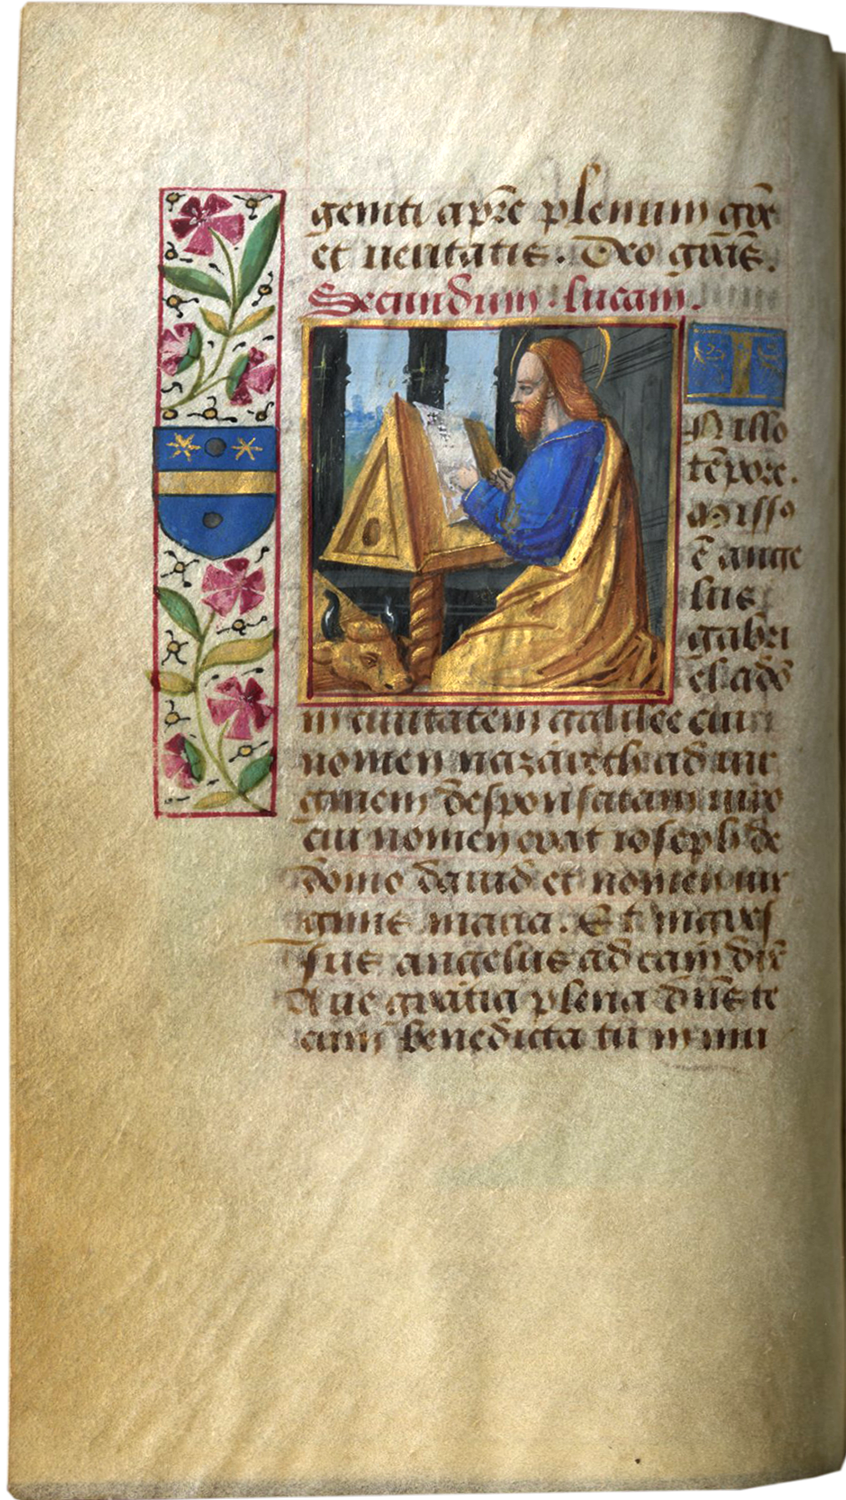 geniti a pr̃e plenum gr̃e
et veritatis. Deo gr̃as.
Secundum lucam.
I
N illo
tẽpore.
Missꝰ
ẽ ange
lus
gabri
el a dõ
in civitatem galilee cui
nomen nazareth ad vir
ginem desponsatam viro
cui nomen erat ioseph de
domo david et nomen vir
ginis maria. Et ingres
sus angelus ad eam dix̃
Ave gratia plena dñs te
cum benedicta tu in mu